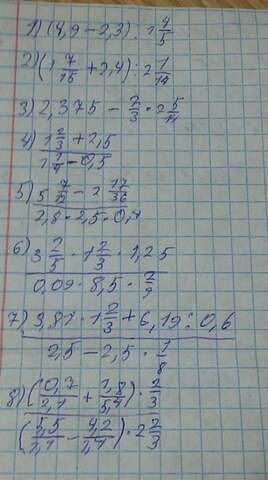 1) (4,9 − 2,3) : 1 4/5
2) (1 7/15 + 2,4) : 2 1/14
3) 2,375 − 2/3 * 2 5/11
4) 1 2/3 + 2,5
1 1/4 − 0,5
5) 5 7/12 − 2 17/36
2,8 · 2,5 · 0,4
6) 3 2/5 · 1 2/3 · 1,25
0,09 · 8,5 · 2/9
7) 3,81 · 1 2/3 + 6,19 : 0,6
2,5 − 2,5 · 1/8
8) (0,7/2,1 + 1,8/5,4) : 2/3
(5,5/1,1 − 4,2/1,4) · 2 2/3